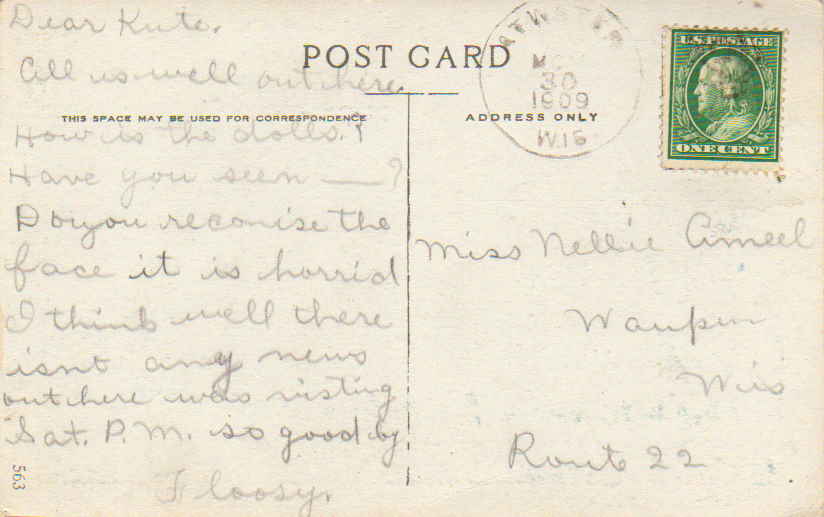 Dear Kute.
All is well out here.
POST CARD
THIS SPACE MAY BE USED FOR CORRESPONDENCE
How is the dolls.?
Have you seen —?
Do you reconise the
face it is horrid
I think well there
isnt any news
out here was visting
Sat. P.M. so good by
Floosy.
563
ADDRESS ONLY
30
1909
WIS
U.S. POSTAGE
ONE CENT
Miss Nellie Ameel
Waupun
Wis
Route 22